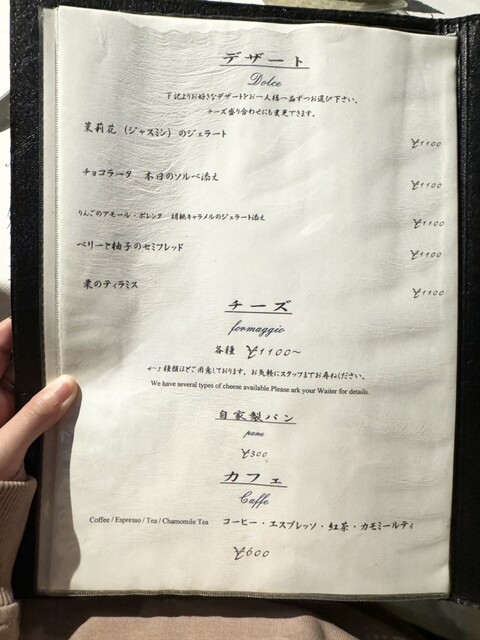 デザート
Dolce
下記よりお好きなデザートをお一人様一品ずつお選び下さい。
チーズ盛り合わせにも変更できます。
茉莉花(ジャスミン)のジェラート
¥1100
チョコラータ 本日のソルベ添え
¥1100
りんごのアモール・ポレンタ 胡桃キャラメルのジェラート添え
¥1100
ベリーと柚子のセミフレッド
¥1100
栗のティラミス
¥1100
チーズ
formaggio
各種 ¥1100~
種類ほどご用意しております、お気軽にスタッフまでお尋ねください。
We have several types of cheese available.Please ark your Waiter for details.
自家製パン
pane
¥300
カフェ
Caffe
Coffee / Espresso / Tea / Chamomile Tea コーヒー・エスプレッソ・紅茶・カモミールティ
¥600